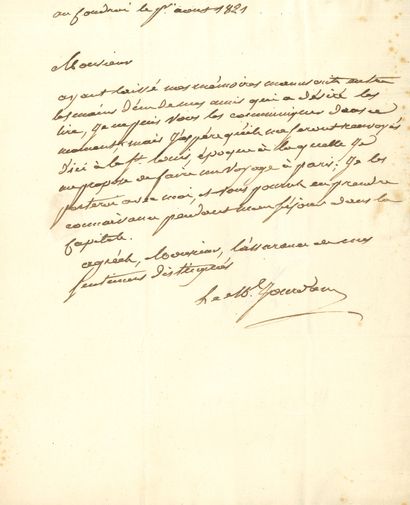 au Coudrai le 1er aout 1821
Monsieur
ayant laissé mes mémoires manuscrits entre
les mains d'un de mes amis qui a désiré les
lire, je ne puis vous les communiquer dans ce
moment; mais j'espère qu'ils me seront renvoyés
d'ici à la St Louis, époque à laquelle je
me propose de faire un voyage à paris; je les
porterai avec moi, et vous pourrez en prendre
connaissance pendant mon séjour dans la
Capitale.
agréez, Monsieur, l'assurance de mes
sentimens distingués
Le Mal Jourdan